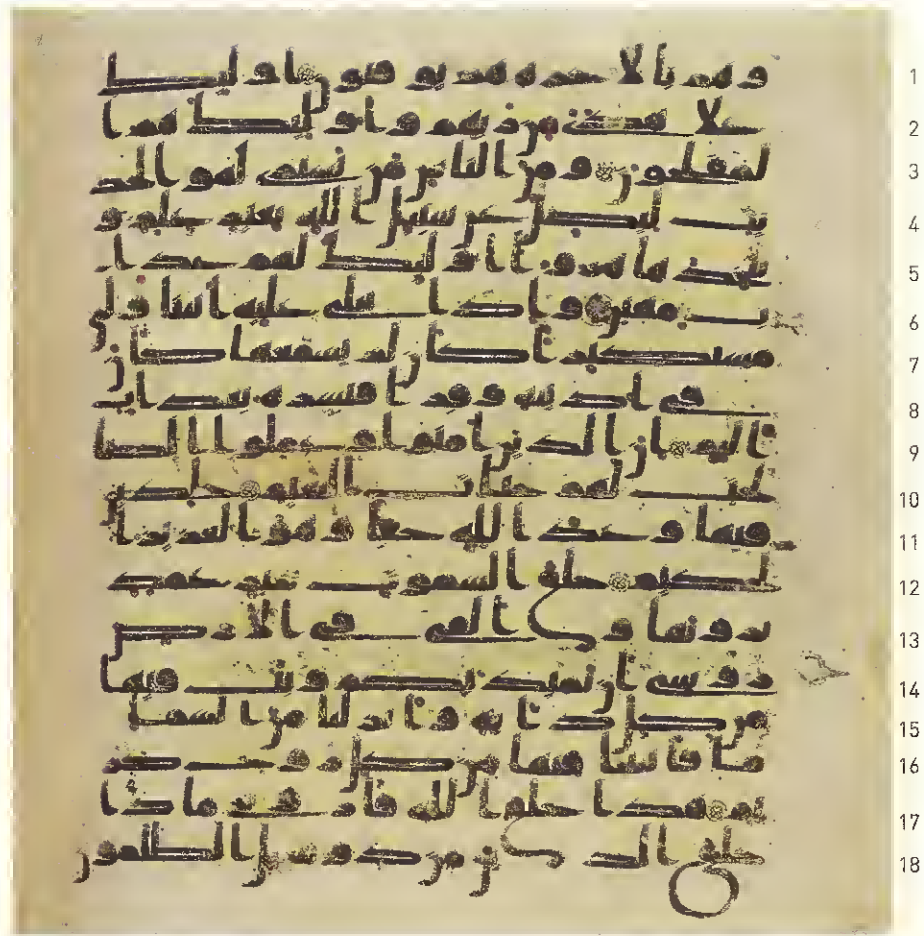 وهم بالاخره هم يوقنون اوليك 1
على هدى من ربهم واوليك هم ا 2
لمفلحون ومن الناس من يشتري لهو الحد 3
يث ليضل عن سبيل الله بغير علم و 4
يتخذها هزوا اوليك لهم عذا 5
ب مهين واذا تتلى عليه ايتنا ولى 6
مستكبرا كان لم يسمعها كان 7
في اذنيه وقرا فبشره بعذاب 8
اليم ان الذين امنوا وعملوا الصا 9
لحت لهم جنات النعيم خلدين 10
فيها وعد الله حقا وهو العزيز ا 11
لحكيم خلق السموت بغير عمد 12
ترونها والقى في الارض 13
روسي ان تميد بكم وبث فيها 14
من كل دابه وانزلنا من السما 15
ما فانبتنا فيها من كل زوج كر 16
يم هذا خلق الله فاروني ماذا 17
خلق الذين من دونه بل الظلمون 18